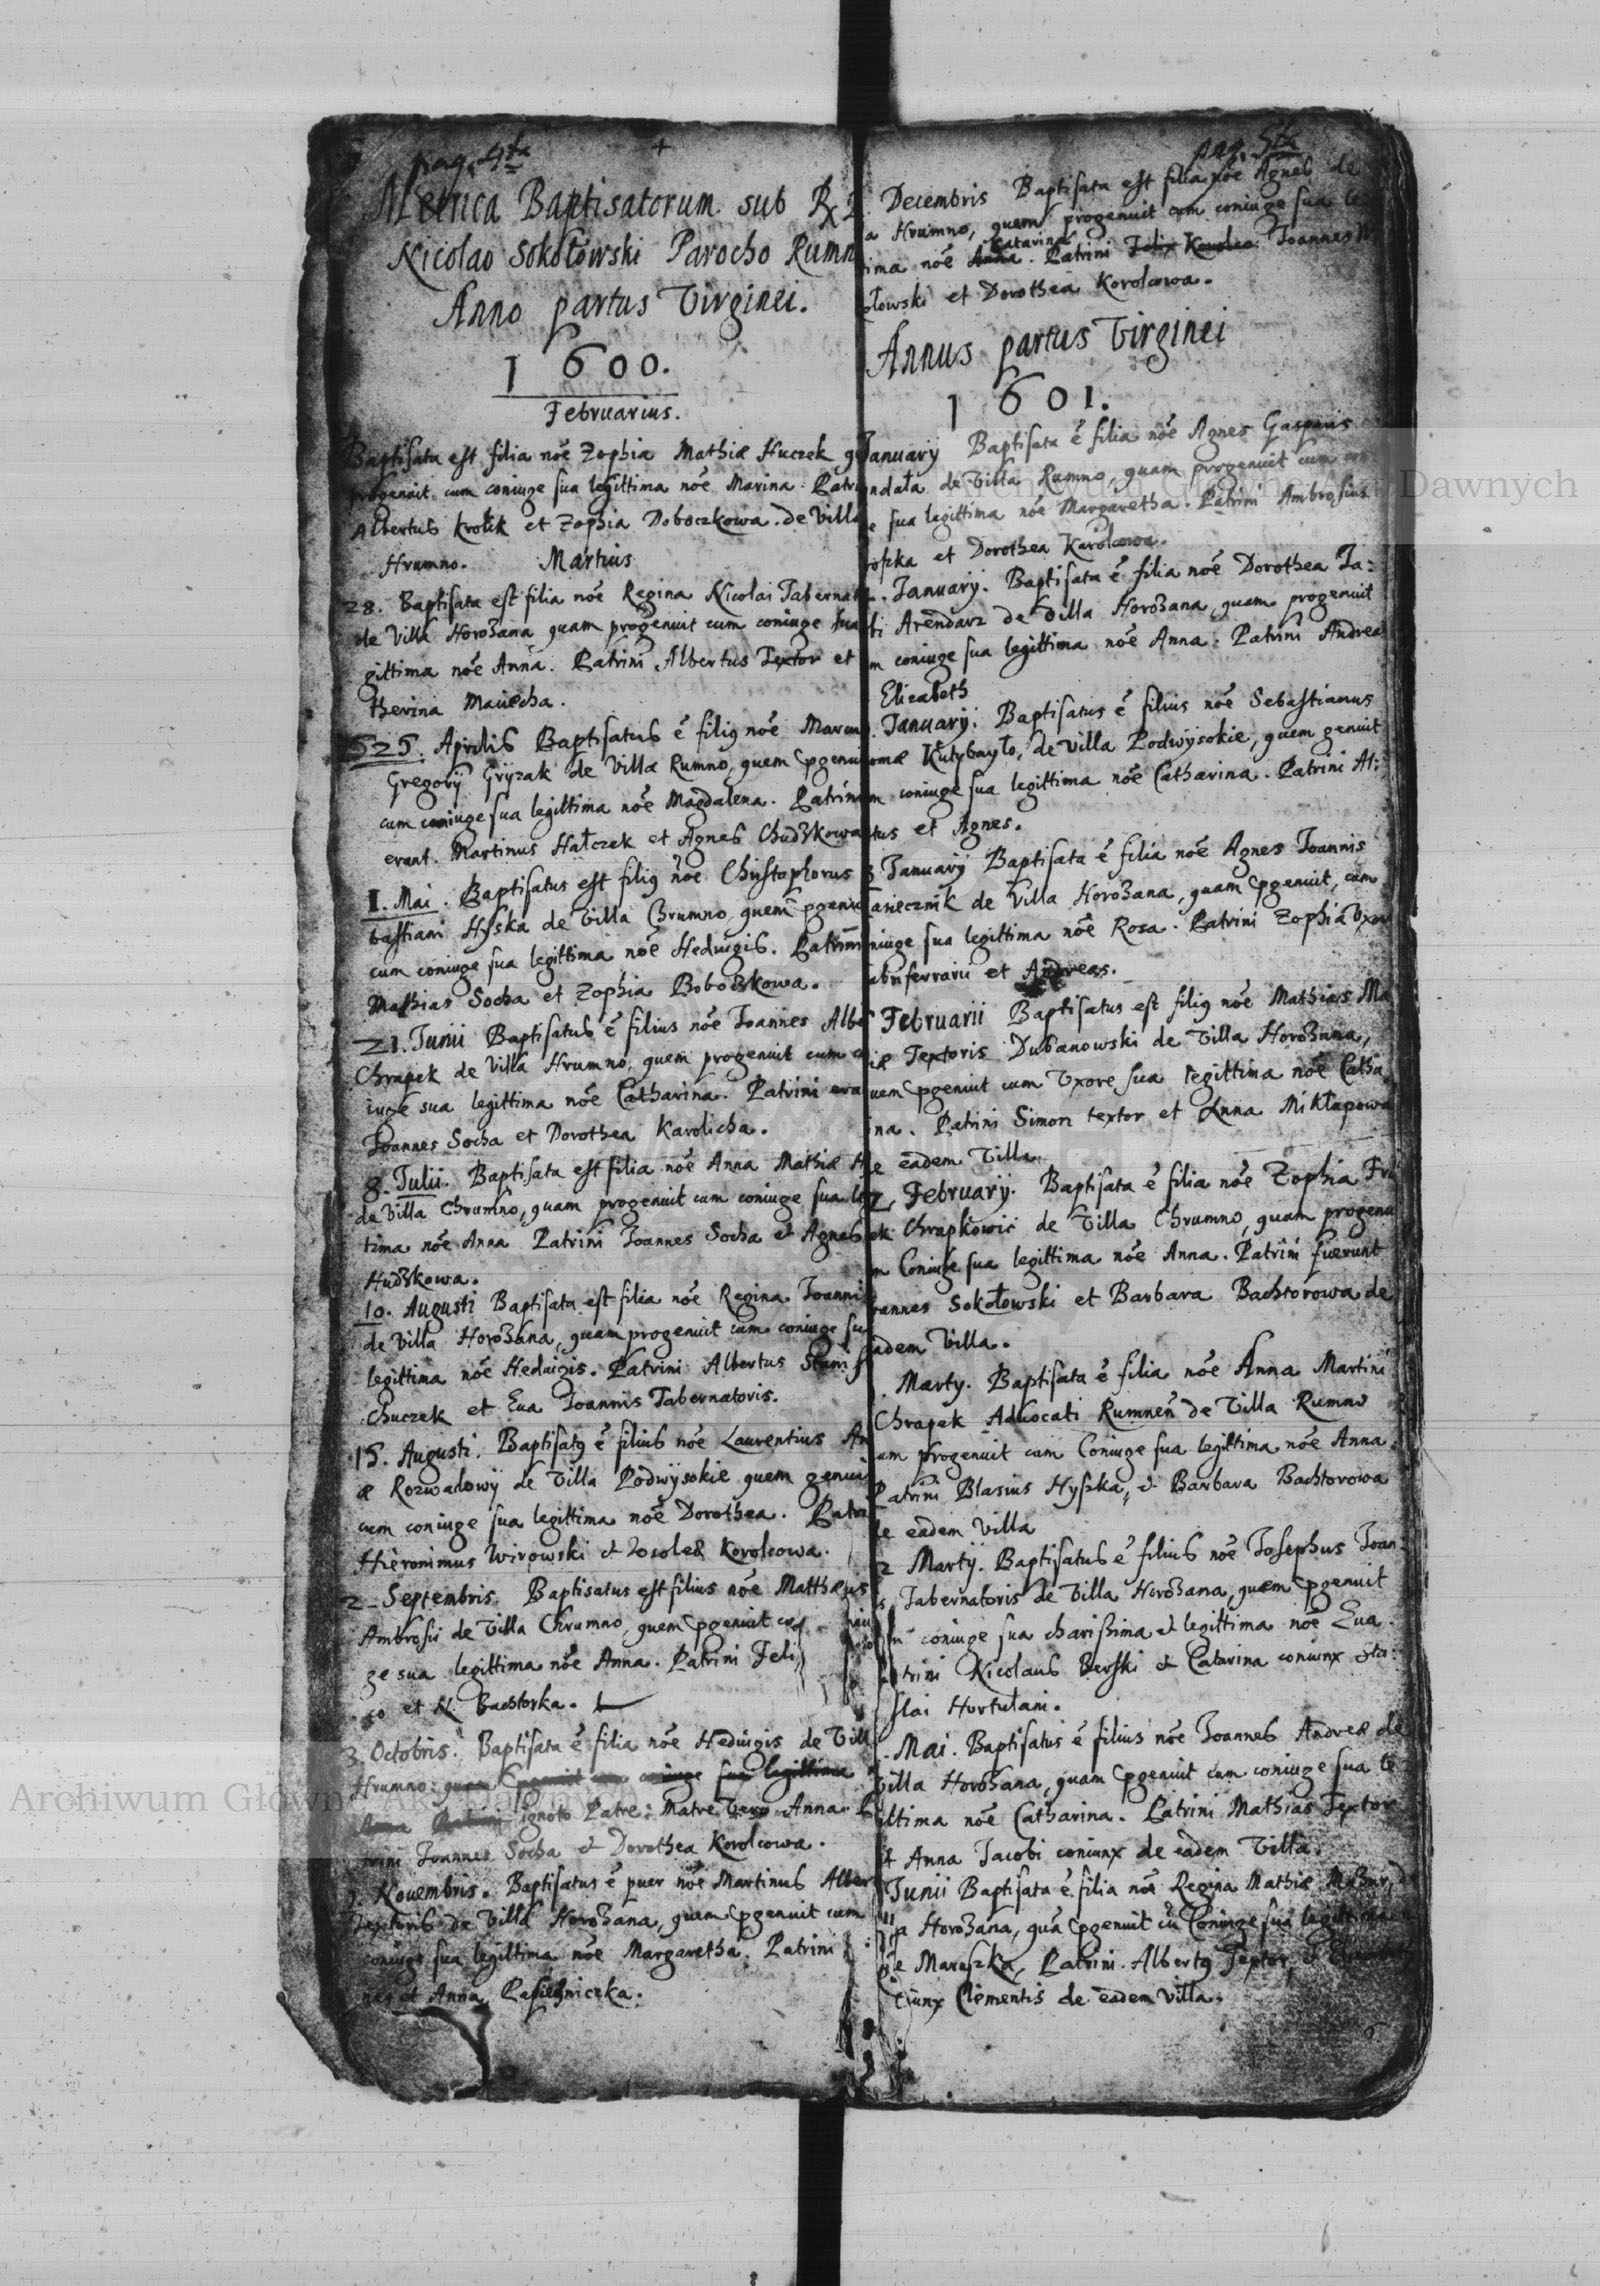 pag. 4ta
+
Metrica Baptisatorum sub
Nicolao Sokołowski Parocho Rumn
Anno partus Virginei.
1600.
Februarius.
Baptisata est filia nōe Zophia Mathiæ Huczek
progenuit cum coniuge sua legittima nōe Marina. Patri
Albertus Krolik et Zophia Doboczkowa. de Villa
Hrumno. Martius
28. Baptisata est filia nōe Regina Nicolai Tabernat
de Villa Horožana quam progenuit cum coniuge sua
gittima nōe Anna. Patrini Albertus Textor et
therina Maiecha.
525. Aprilis Baptisatus ē filiꝯ nōe Marcu
Gregorij Gryzak de Villa Rumno, quem pgenu
cum coniuge sua legittima nōe Magdalena. Patrin
erant. Martinus Hałczek et Agnes Chudzkowa
1. Mai. Baptisatus est filiꝯ nōe Christophorus
bastiani Hyska de Villa Chrumno, quem pgenu
cum coniuge sua legittima nōe Heduigis. Patrini
Mathias Socha et Zophia Boboczkowa.
21. Junii Baptisatus ē filius nōe Joannes Albe
Chrapek de Villa Hrumno, quem progenuit cum
iuge sua legittima nōe Catharina. Patrini era
Joannes Socha et Dorothea Karolicha.
8. Julii. Baptisata est filia nōe Anna Mathiæ
de Villa Chrumno, quam progenuit cum coniuge sua le
tima nōe Anna Patrini Joannes Socha et Agnes
Hudzkowa.
10. Augusti Baptisata est filia nōe Regina Joanni
de Villa Horožana, quam progenuit cum coniuge su
legittima nōe Heduigis. Patrini Albertus
Chuczek et Eua Joannis Tabernatoris.
15. Augusti. Baptisatꝯ ē filius nōe Laurentius An
æ Rozwadowij de Villa Podwysokie quem genui
cum coniuge sua legittima nōe Dorothea. Patri
Hieronimus Wirowski et Korolcowa.
2 Septembris. Baptisatus est filius nōe Matthæus
Ambrosii de Villa Chrumno, quem pgenuit co niu
ge sua legittima nōe Anna. Patrini Feli
co et N Bachtorka.
3 Octobris. Baptisata ē filia nōe Heduigis de Vill
Hrumno: quam pgenuit cum coniuge sua legittima
Anna Patrini ignoto Patre: Matre Vero Anna. P
trini Joannes Socha et Dorothea Korolcowa.
1. Nouembris. Baptisatus ē puer nōe Martinus Alber
Textoris de Villa Horožana, quem pgenuit cum
coniuge sua legittima nōe Margaretha. Patrini
nas et Anna Pasieczniczka.
pag. 5ta
Decembris Baptisata est filia nōe Agnes de
a Hrumno, quam progenuit cum coniuge sua le
Catarina
ima nōe Anna. Patrini Felix Joannes
ołowski et Dorothea Korolcowa.
Annus partus Virginei
1601.
January Baptisata ē filia nōe Agnes Gasparis
ndała de Villa Rumno, quam progenuit cum con
e sua legittima nōe Margaretha. Patrini Ambrosius
oszka et Dorothea Karolcowa.
January. Baptisata ē filia nōe Dorothea Ja:
bi Arendarz de Villa Horožana, quam progenuit
m coniuge sua legittima nōe Anna. Patrini Andrea
Elizabeth
January. Baptisatus ē filius nōe Sebastianus
omæ Kutybayło, de Villa Podwysokie, quem genuit
m coniuge sua legittima nōe Catharina. Patrini Al:
tus et Agnes.
January Baptisata ē filia nōe Agnes Joannis
asiecznik de Villa Horožana, quam pgenuit, cum
niuge sua legittima nōe Rosa. Patrini Zophia Vxor
abriferrarii et Andreas.
Februarii Baptisatus est filiꝯ nōe Mathias Ma
iæ Textoris Dubanowski de Villa Horožana,
uem pgenuit cum Vxore sua legittima nōe Catha
ina. Patrini Simon textor et Anna Mikłapowa
e eadem Villa.
2 February. Baptisata ē filia nōe Zophia Fra
ek Chrapkowic de Villa Chrumno, quam progenu
m Coniuge sua legittima nōe Anna. Patrini fuerunt
oannes Sokołowski et Barbara Bachtorowa de
adem Villa.
Marty. Baptisata ē filia nōe Anna Martini
Chrapek Aduocati Rumnen̄ de Villa Rumno
am progenuit cum Coniuge sua legittima nōe Anna.
Patrini Blasius Hyszka, et Barbara Bachtorowa
de eadem Villa
2 Martij. Baptisatus ē filius nōe Josephus Joan:
s Tabernatoris de Villa Horožana, quem pgenuit
coniuge sua charissima et legittima nōe Eua.
atrini Nicolaus Berski et Catarina coniunx
slai Hortulani.
Mai. Baptisatus ē filius nōe Joannes Andreæ de
Villa Horožana, quam pgenuit cum coniuge sua le
ittima nōe Catharina. Patrini Mathias Textor
et Anna Jacobi coniunx de eadem Villa.
Junii Baptisata ē filia nōe Regina Mathiæ Mazur, d
a Horožana, quā pgenuit cū Coniuge sua legittima
e Maruszka, Patrini. Albertꝯ Textor,
ciunx Clementis de eadem villa.
Archiwum Główne Akt Dawnych
Archiwum Główne Akt Dawnych